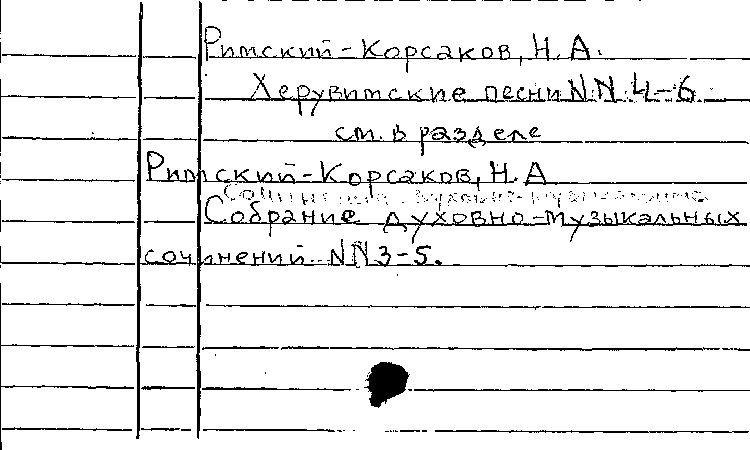 Римский-Корсаков, Н. А.
Херувимские песни NN 4-6
см. в разделе
Римский-Корсаков, Н. А
Собрание духовно-музыкальных
сочинений NN 3-5.